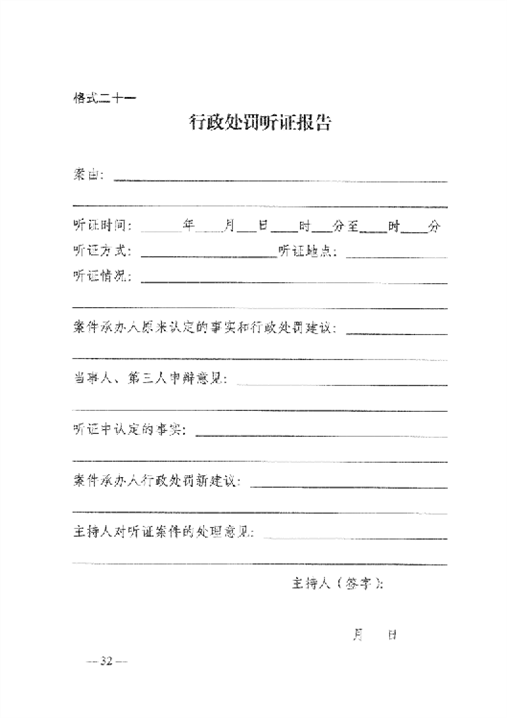 格式二十一
行政处罚听证报告
案由:
听证时间: 年 月 日 时 分至 时 分
听证方式: 听证地点:
听证情况:
案件承办人原来认定的事实和行政处罚建议:
当事人、第三人申辩意见:
听证中认定的事实:
案件承办人行政处罚新建议:
主持人对听证案件的处理意见:
主持人(签字):
月 日
—32—